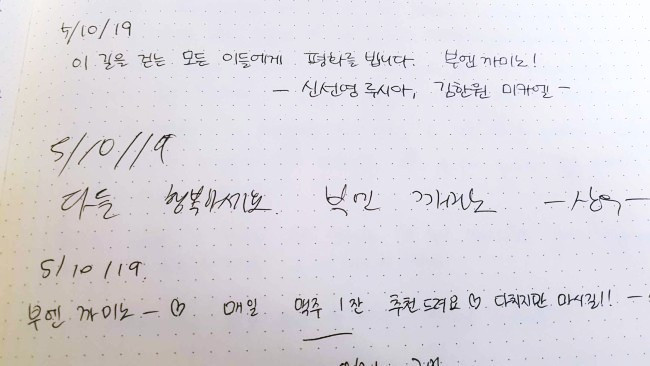 5/10/19
이 길을 걷는 모든 이들에게 평화를 빕니다. 부엔 까미노!
- 신선영 루시아, 김한원 미카엘 -
5/10/19
다들 행복하세요. 부엔 까미노 - 상욱 -
5/10/19.
부엔 까미노 - ♡ 매일 맥주 1잔 추천드려요 ♡ 다치지만 마시길!! -